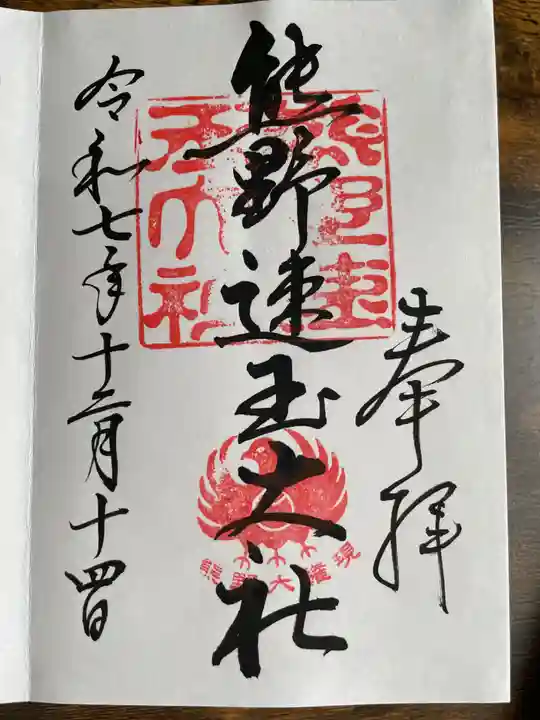 奉拝
熊野速玉大社
熊野速玉大社
熊野大権現
令和七年十二月十四日